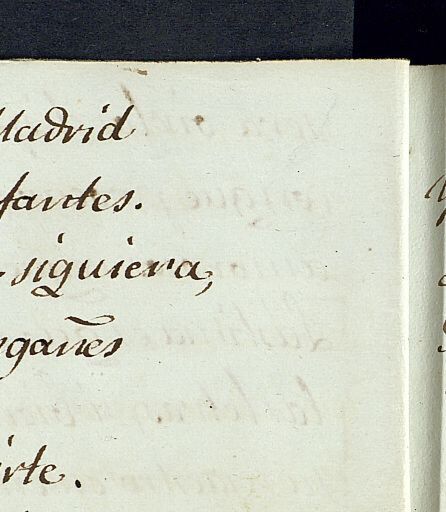 Madrid
fantes.
siguiera,
gañes
irte.